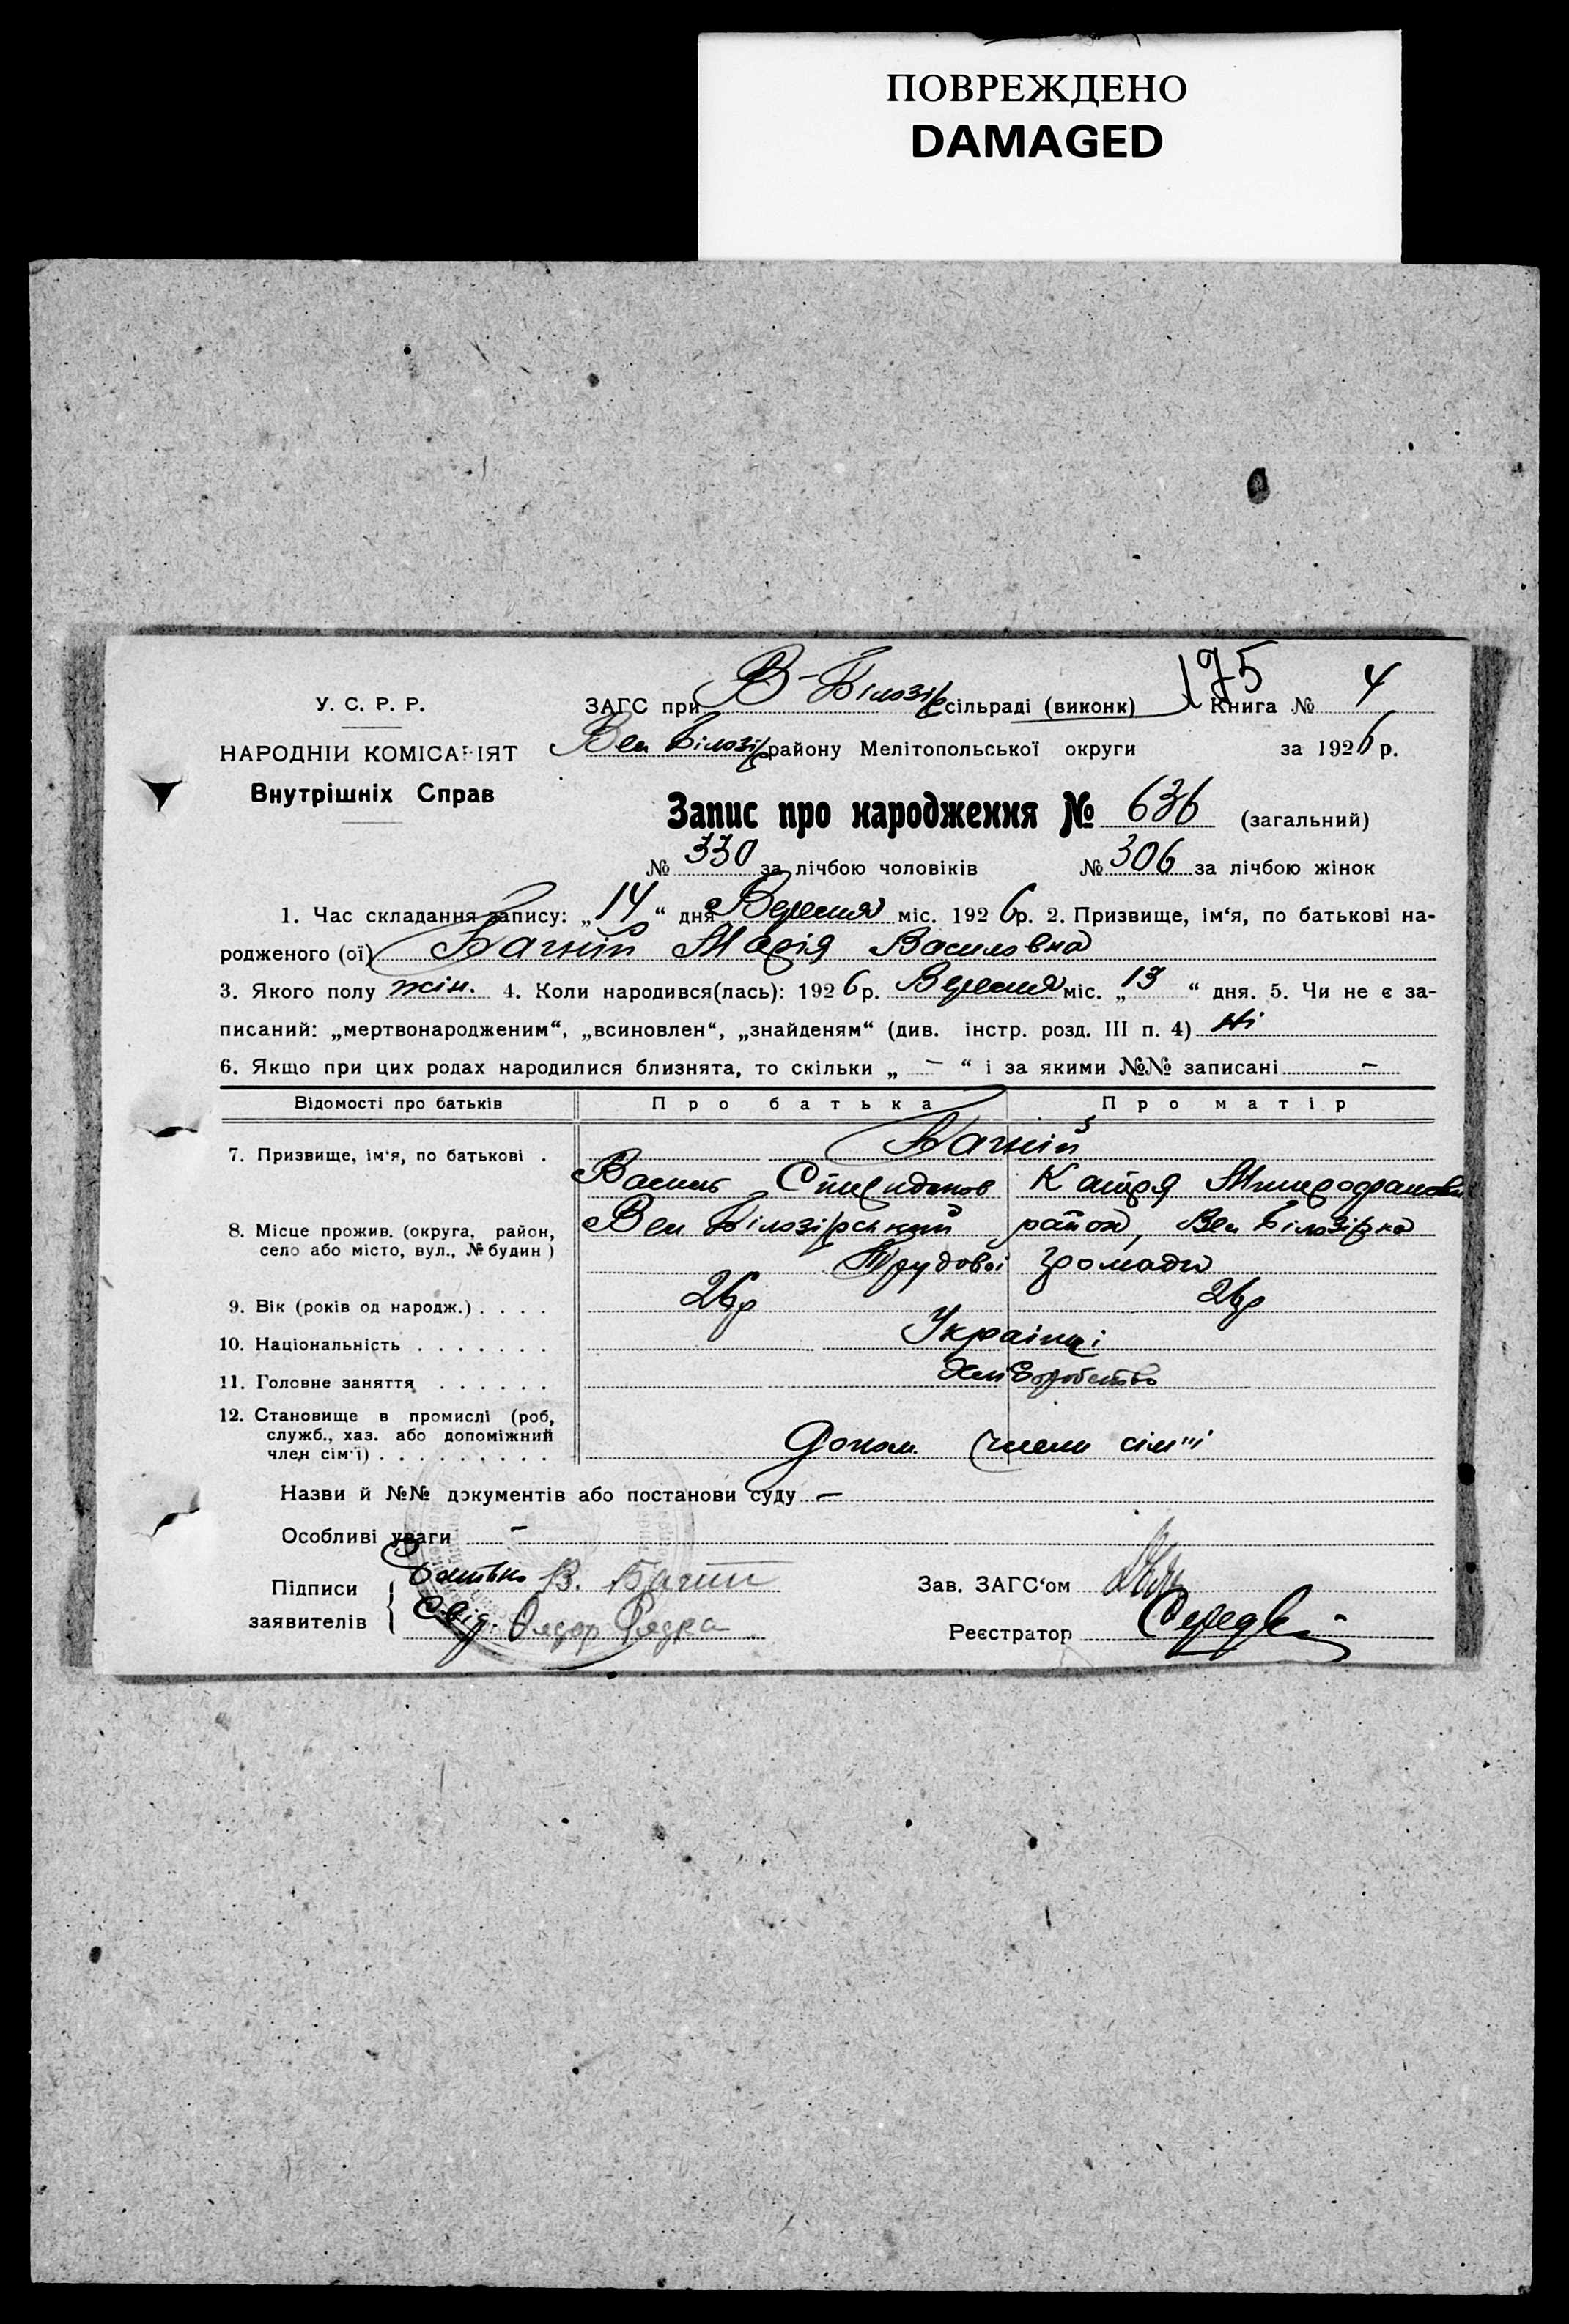 ПОВРЕЖДЕНО
DAMAGED
175
У. С. Р. Р.
ЗАГС при В-Білозір сільраді (виконк) Книга № 4
НАРОДНІЙ КОМІСАРІЯТ
Вел Білозір району Мелітопольської округи за 1926 р.
Внутрішніх Справ
Запис про народження № 636 (загальний)
№ 330 за лічбою чоловіків № 306 за лічбою жінок
1. Час складання запису: „14“ дня Вересня міс. 1926 р. 2. Призвище, ім‘я, по батькові на-
родженого (ої) Багній Марія Василовна
3. Якого полу жін. 4. Коли народився(лась): 1926 р. Вересня міс. „13“ дня. 5. Чи не є за-
писаний: „мертвонародженим“, „всиновлен“, „знайденям“ (див. інстр. розд. III п. 4) Ні
6. Якщо при цих родах народилися близнята, то скільки „ — “ і за якими №№ записані —
Відомості про батьків Про батька Про матір
7. Призвище, ім‘я, по батькові . Багній
Василь Спиридонов Катря Митрофановн
8. Місце прожив. (округа, район, село або місто, вул., № будин) Вел Білозірський район, Вел Білозірка
Трудової громади
9. Вік (років од народж.) . . . . 26р 26р
10. Національність . . . . . . . Українці
11. Головне заняття . . . . . . Хліборобство
12. Становище в промислі (роб,
служб., хаз. або допоміжний
член сім‘ї) . . . . . . . . . Допом. члени сім"ї
Назви й №№ документів або постанови суду —
Особливі уваги —
Підписи заявителів { Батько В. Багній
Свід. Федор
Зав. ЗАГС‘ом
Реєстратор